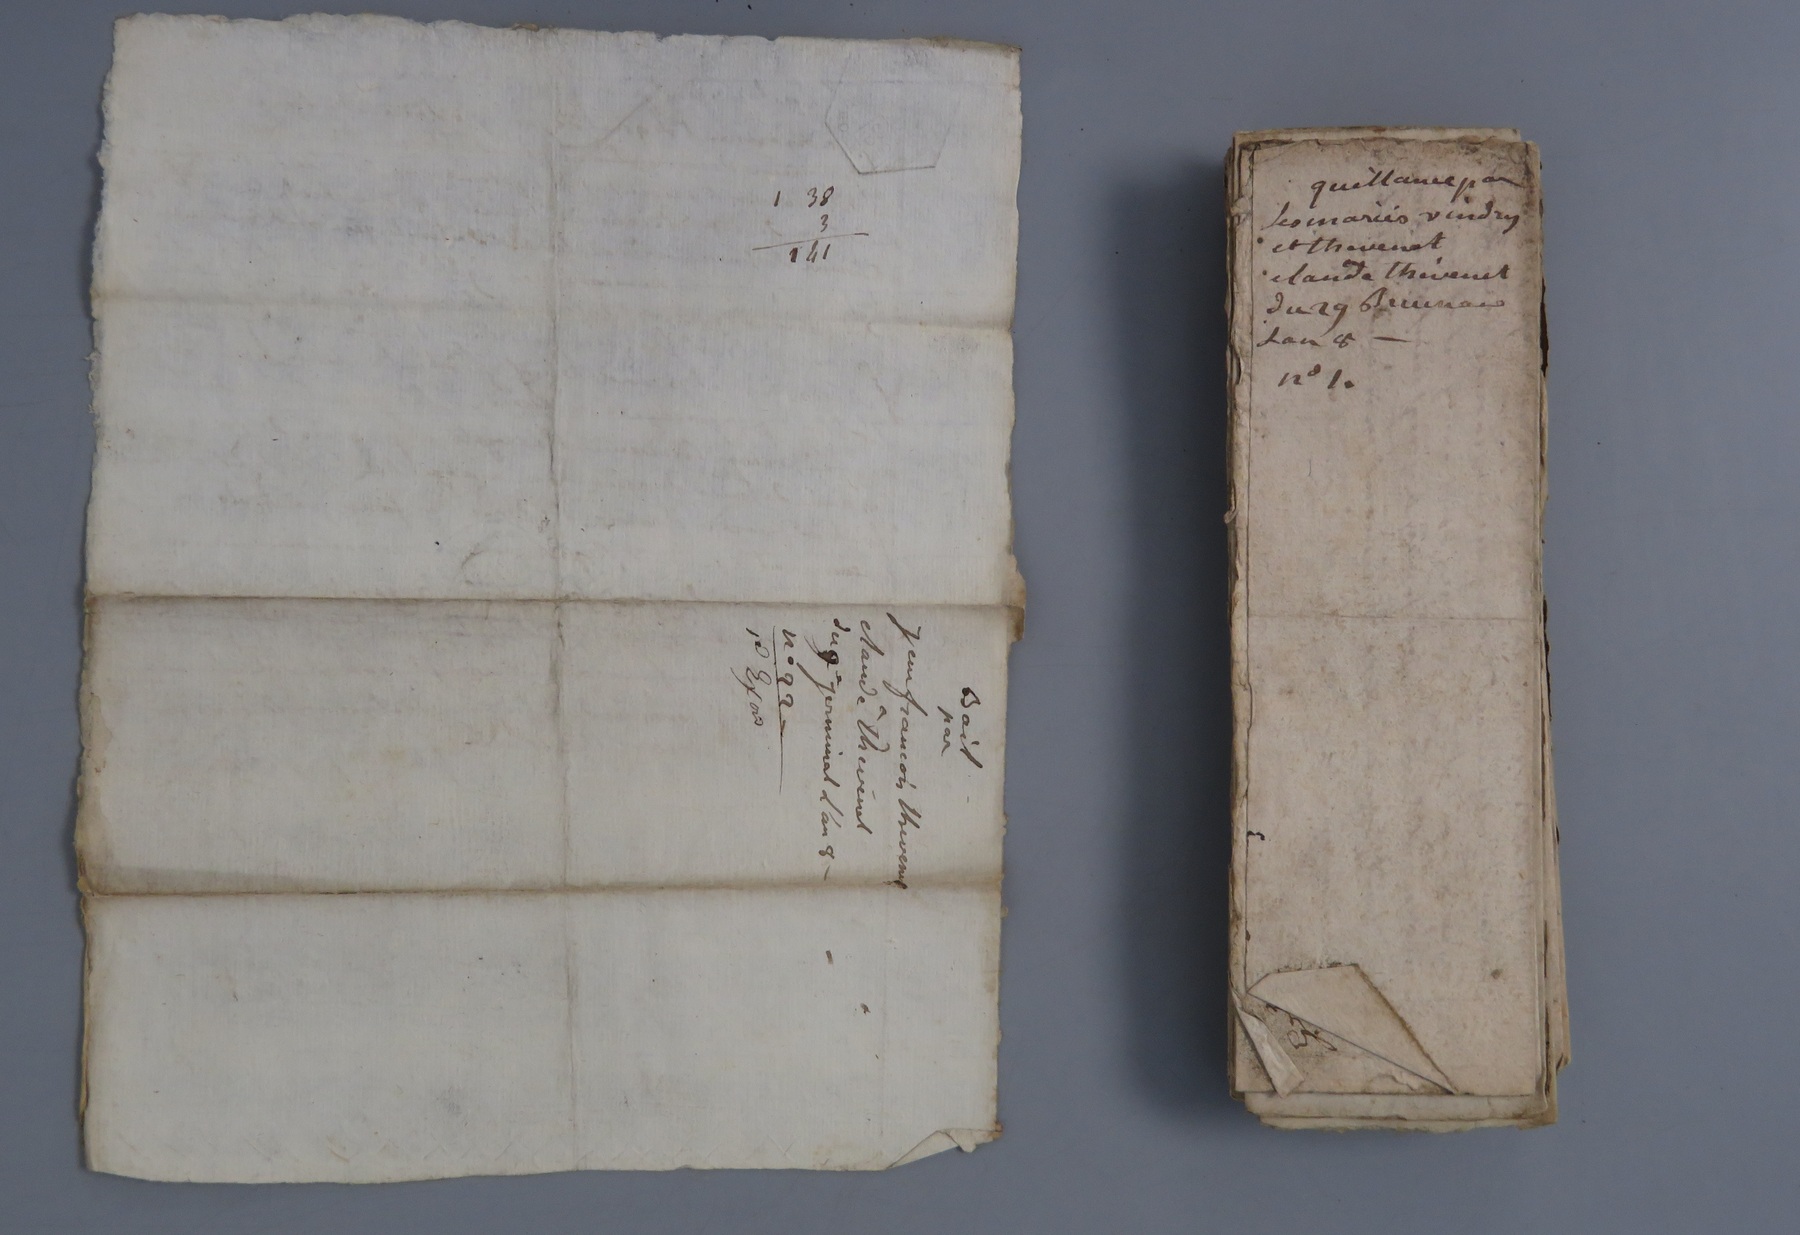 1 38
3
141
Bail
par
Jean françois thevenet
claude thevenet
du 9 germinal l'an 8 -
n° 92
quittance par
les mariés vindry
et thevenet
claude thevenet
du 29 Brumaire
lan 8 —
n° 1.